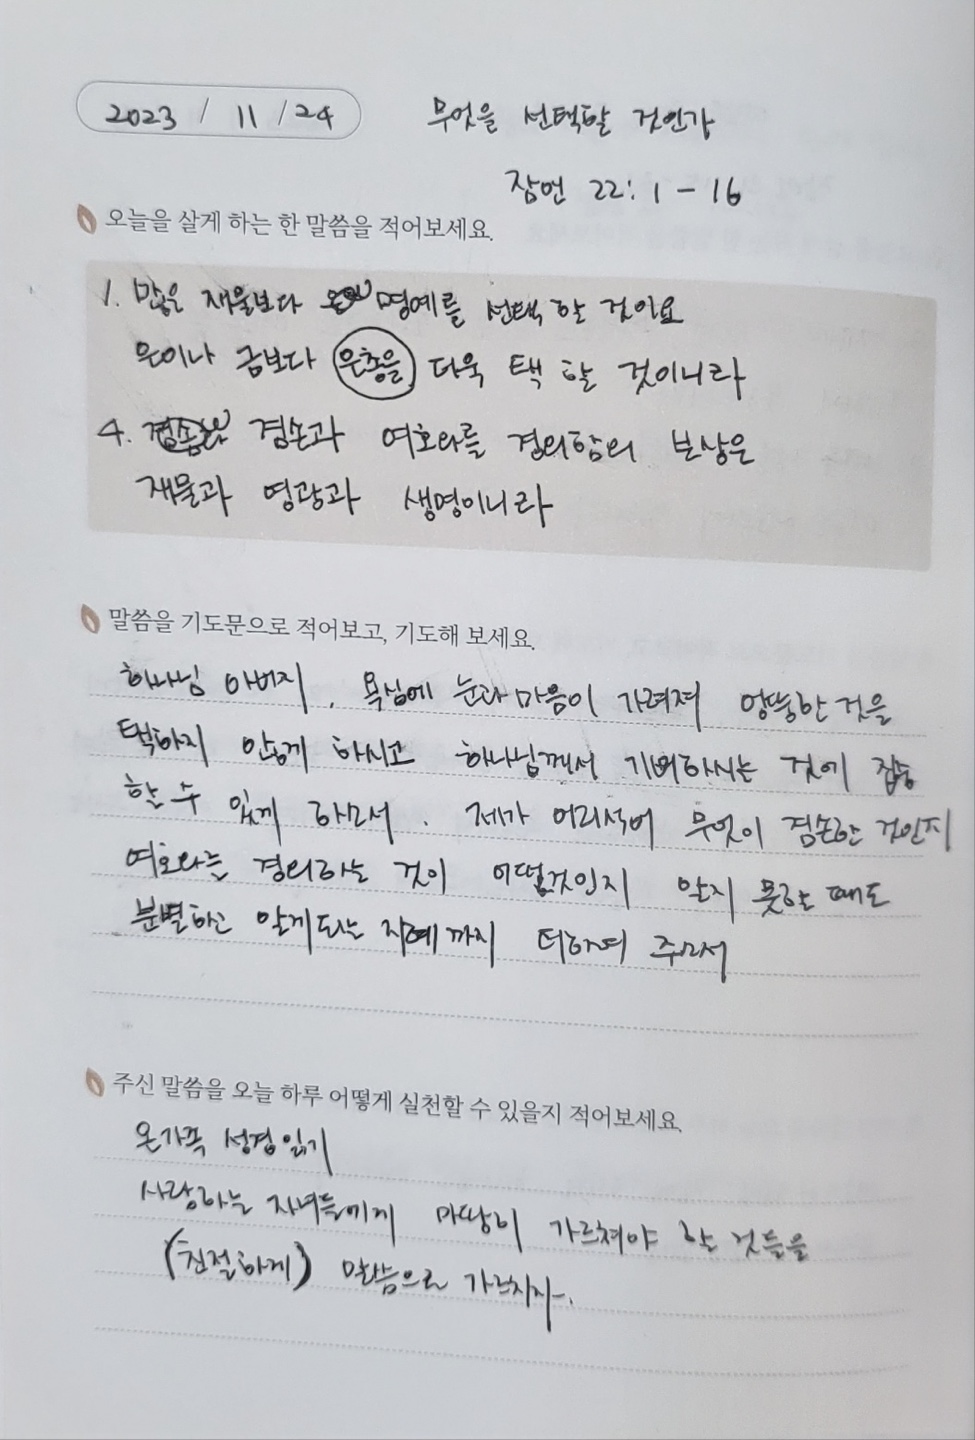 2023 / 11 / 24 무엇을 선택할 것인가
잠언 22:1-16
오늘을 살게 하는 한 말씀을 적어보세요.
1. 많은 재물보다 명예를 선택할 것이요
은이나 금보다 은총을 더욱 택할 것이니라
4. 겸손과 여호와를 경외함의 보상은
재물과 영광과 생명이니라
말씀을 기도문으로 적어보고, 기도해 보세요.
하나님 아버지, 욕심에 눈과 마음이 가려져 엉뚱한 것을
택하지 않게 하시고 하나님께서 기뻐하시는 것에 집중
할 수 있게 하소서. 제가 어리석어 무엇이 겸손한 것인지
여호와를 경외하는 것이 어떨것인지 알지 못하는 때도
분별하고 알게되는 지혜까지 더하여 주소서
주신 말씀을 오늘 하루 어떻게 실천할 수 있을지 적어보세요.
온가족 성경읽기
사랑하는 자녀들에게 마땅히 가르쳐야 할 것들을
(친절하게) 말씀으로 가르치자.